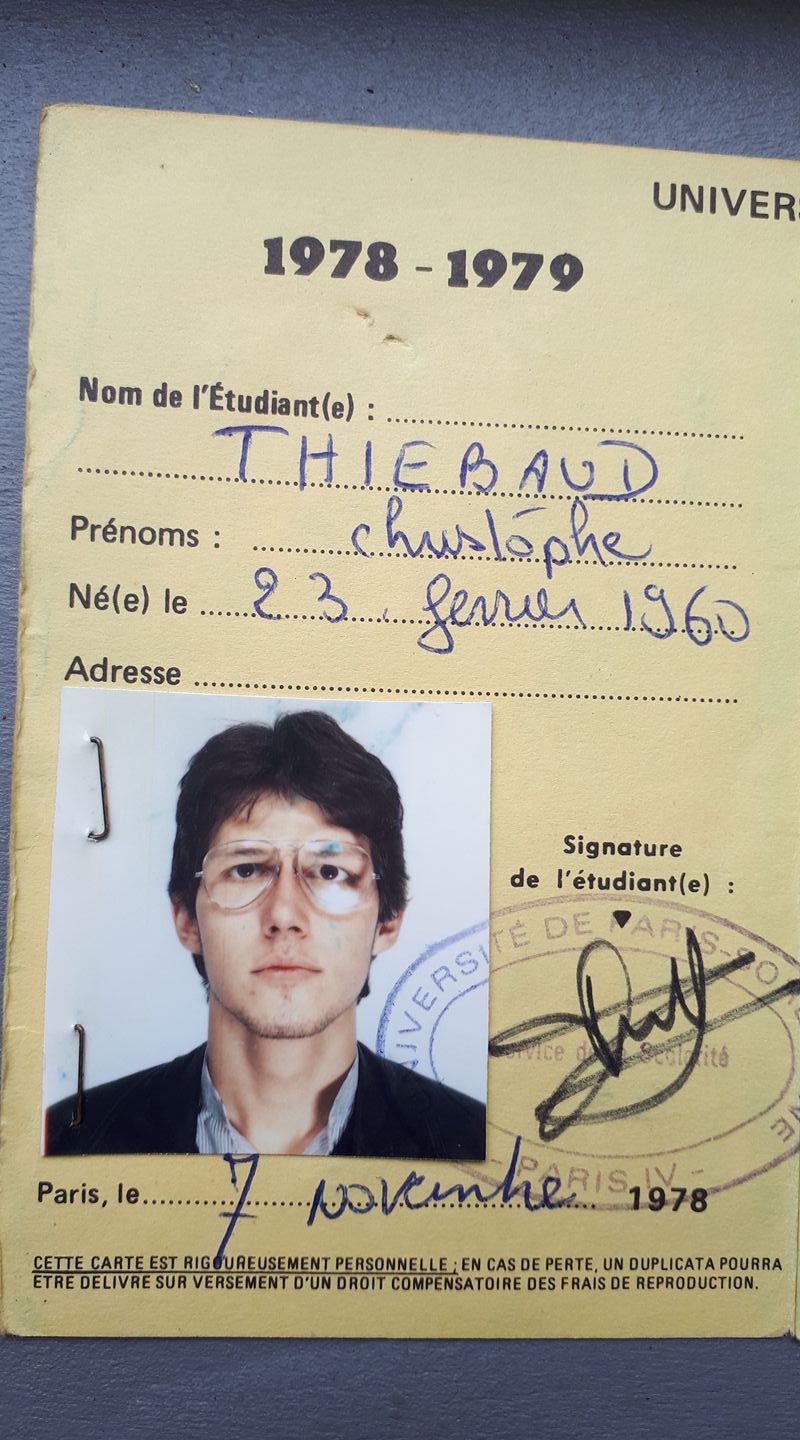 UNIVERS
1978 - 1979
Nom de l'Étudiant(e) :
THIEBAUD
Prénoms : christophe
Né(e) le 23 fevrier 1960
Adresse
Signature
de l'étudiant(e) :
UNIVERSITÉ DE PARIS-SORBONNE
Service de la Scolarité
- PARIS IV -
Paris, le 7 novembre 1978
CETTE CARTE EST RIGOUREUSEMENT PERSONNELLE ; EN CAS DE PERTE, UN DUPLICATA POURRA
ETRE DELIVRE SUR VERSEMENT D'UN DROIT COMPENSATOIRE DES FRAIS DE REPRODUCTION.